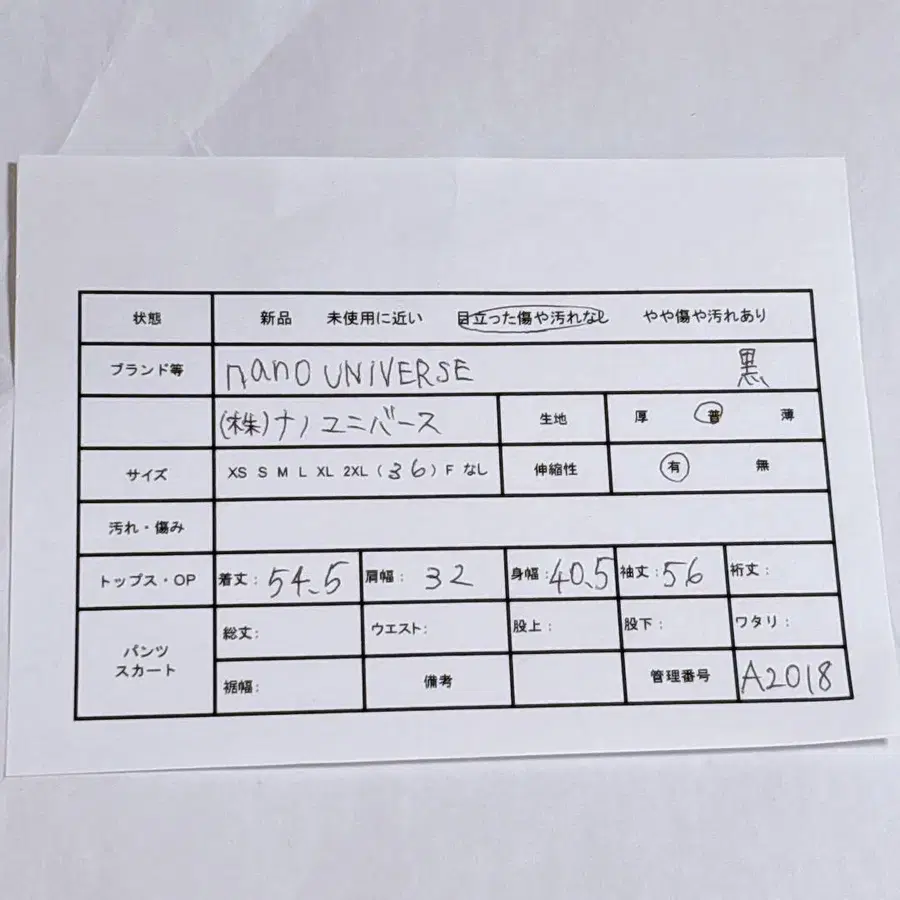 状態 新品 未使用に近い 目立った傷や汚れなし やや傷や汚れあり
ブランド等 nano UNIVERSE 黒
(株)ナノユニバース 生地 厚 普 薄
サイズ XS S M L XL 2XL (36) F なし 伸縮性 有 無
汚れ・傷み
トップス・OP 着丈: 54.5 肩幅: 32 身幅: 40.5 袖丈: 56 裄丈:
パンツ スカート 総丈: ウエスト: 股上: 股下: ワタリ:
裾幅: 備考 管理番号 A2018